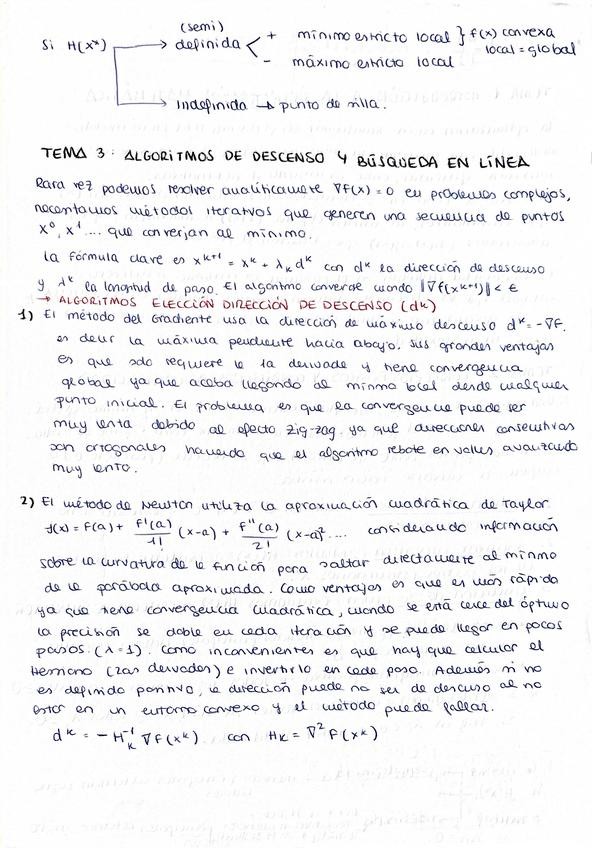 (semi)
Si H(x*) → definida < + mínimo estricto local } f(x) convexa
- máximo estricto local local = global
→ Indefinida → punto de silla.
TEMA 3: ALGORITMOS DE DESCENSO Y BÚSQUEDA EN LÍNEA
Rara vez podemos resolver analíticamente ∇f(x) = 0 en problemas complejos,
necesitamos métodos iterativos que generen una secuencia de puntos
x⁰, x¹ .... que converjan al mínimo.
La fórmula clave es xᵏ⁺¹ = xᵏ + λₖ dᵏ con dᵏ la dirección de descenso
y λᵏ la longitud de paso. El algoritmo converge cuando ||∇f(xᵏ⁺¹)|| < ε
→ ALGORITMOS ELECCIÓN DIRECCIÓN DE DESCENSO (dᵏ)
1) El método del Gradiente usa la dirección de máximo descenso dᵏ = -∇F.
es decir la máxima pendiente hacia abajo. Sus grandes ventajas
es que solo requiere 1a derivada y tiene convergencia
global ya que acaba llegando al mínimo local desde cualquier
punto inicial. El problema es que la convergencia puede ser
muy lenta debido al efecto zig-zag, ya que direcciones consecutivas
son ortogonales haciendo que el algoritmo rebote en valles avanzando
muy lento.
2) El método de Newton utiliza la aproximación cuadrática de Taylor
f(x) = f(a) + f'(a)/1! (x-a) + f''(a)/2! (x-a)² .... considerando información
sobre la curvatura de la función para saltar directamente al mínimo
de la parábola aproximada. Como ventajas es que es más rápido
ya que tiene convergencia cuadrática, cuando se está cerca del óptimo
la precisión se dobla en cada iteración y se puede llegar en pocos
pasos. (λ=1). Como inconvenientes es que hay que calcular el
Hessiano (2as derivadas) e invertirlo en cada paso. Además si no
es definido positivo, la dirección puede no ser de descenso al no
estar en un entorno convexo y el método puede fallar.
dᵏ = -Hₖ⁻¹ ∇F(xᵏ) con Hₖ = ∇²F(xᵏ)